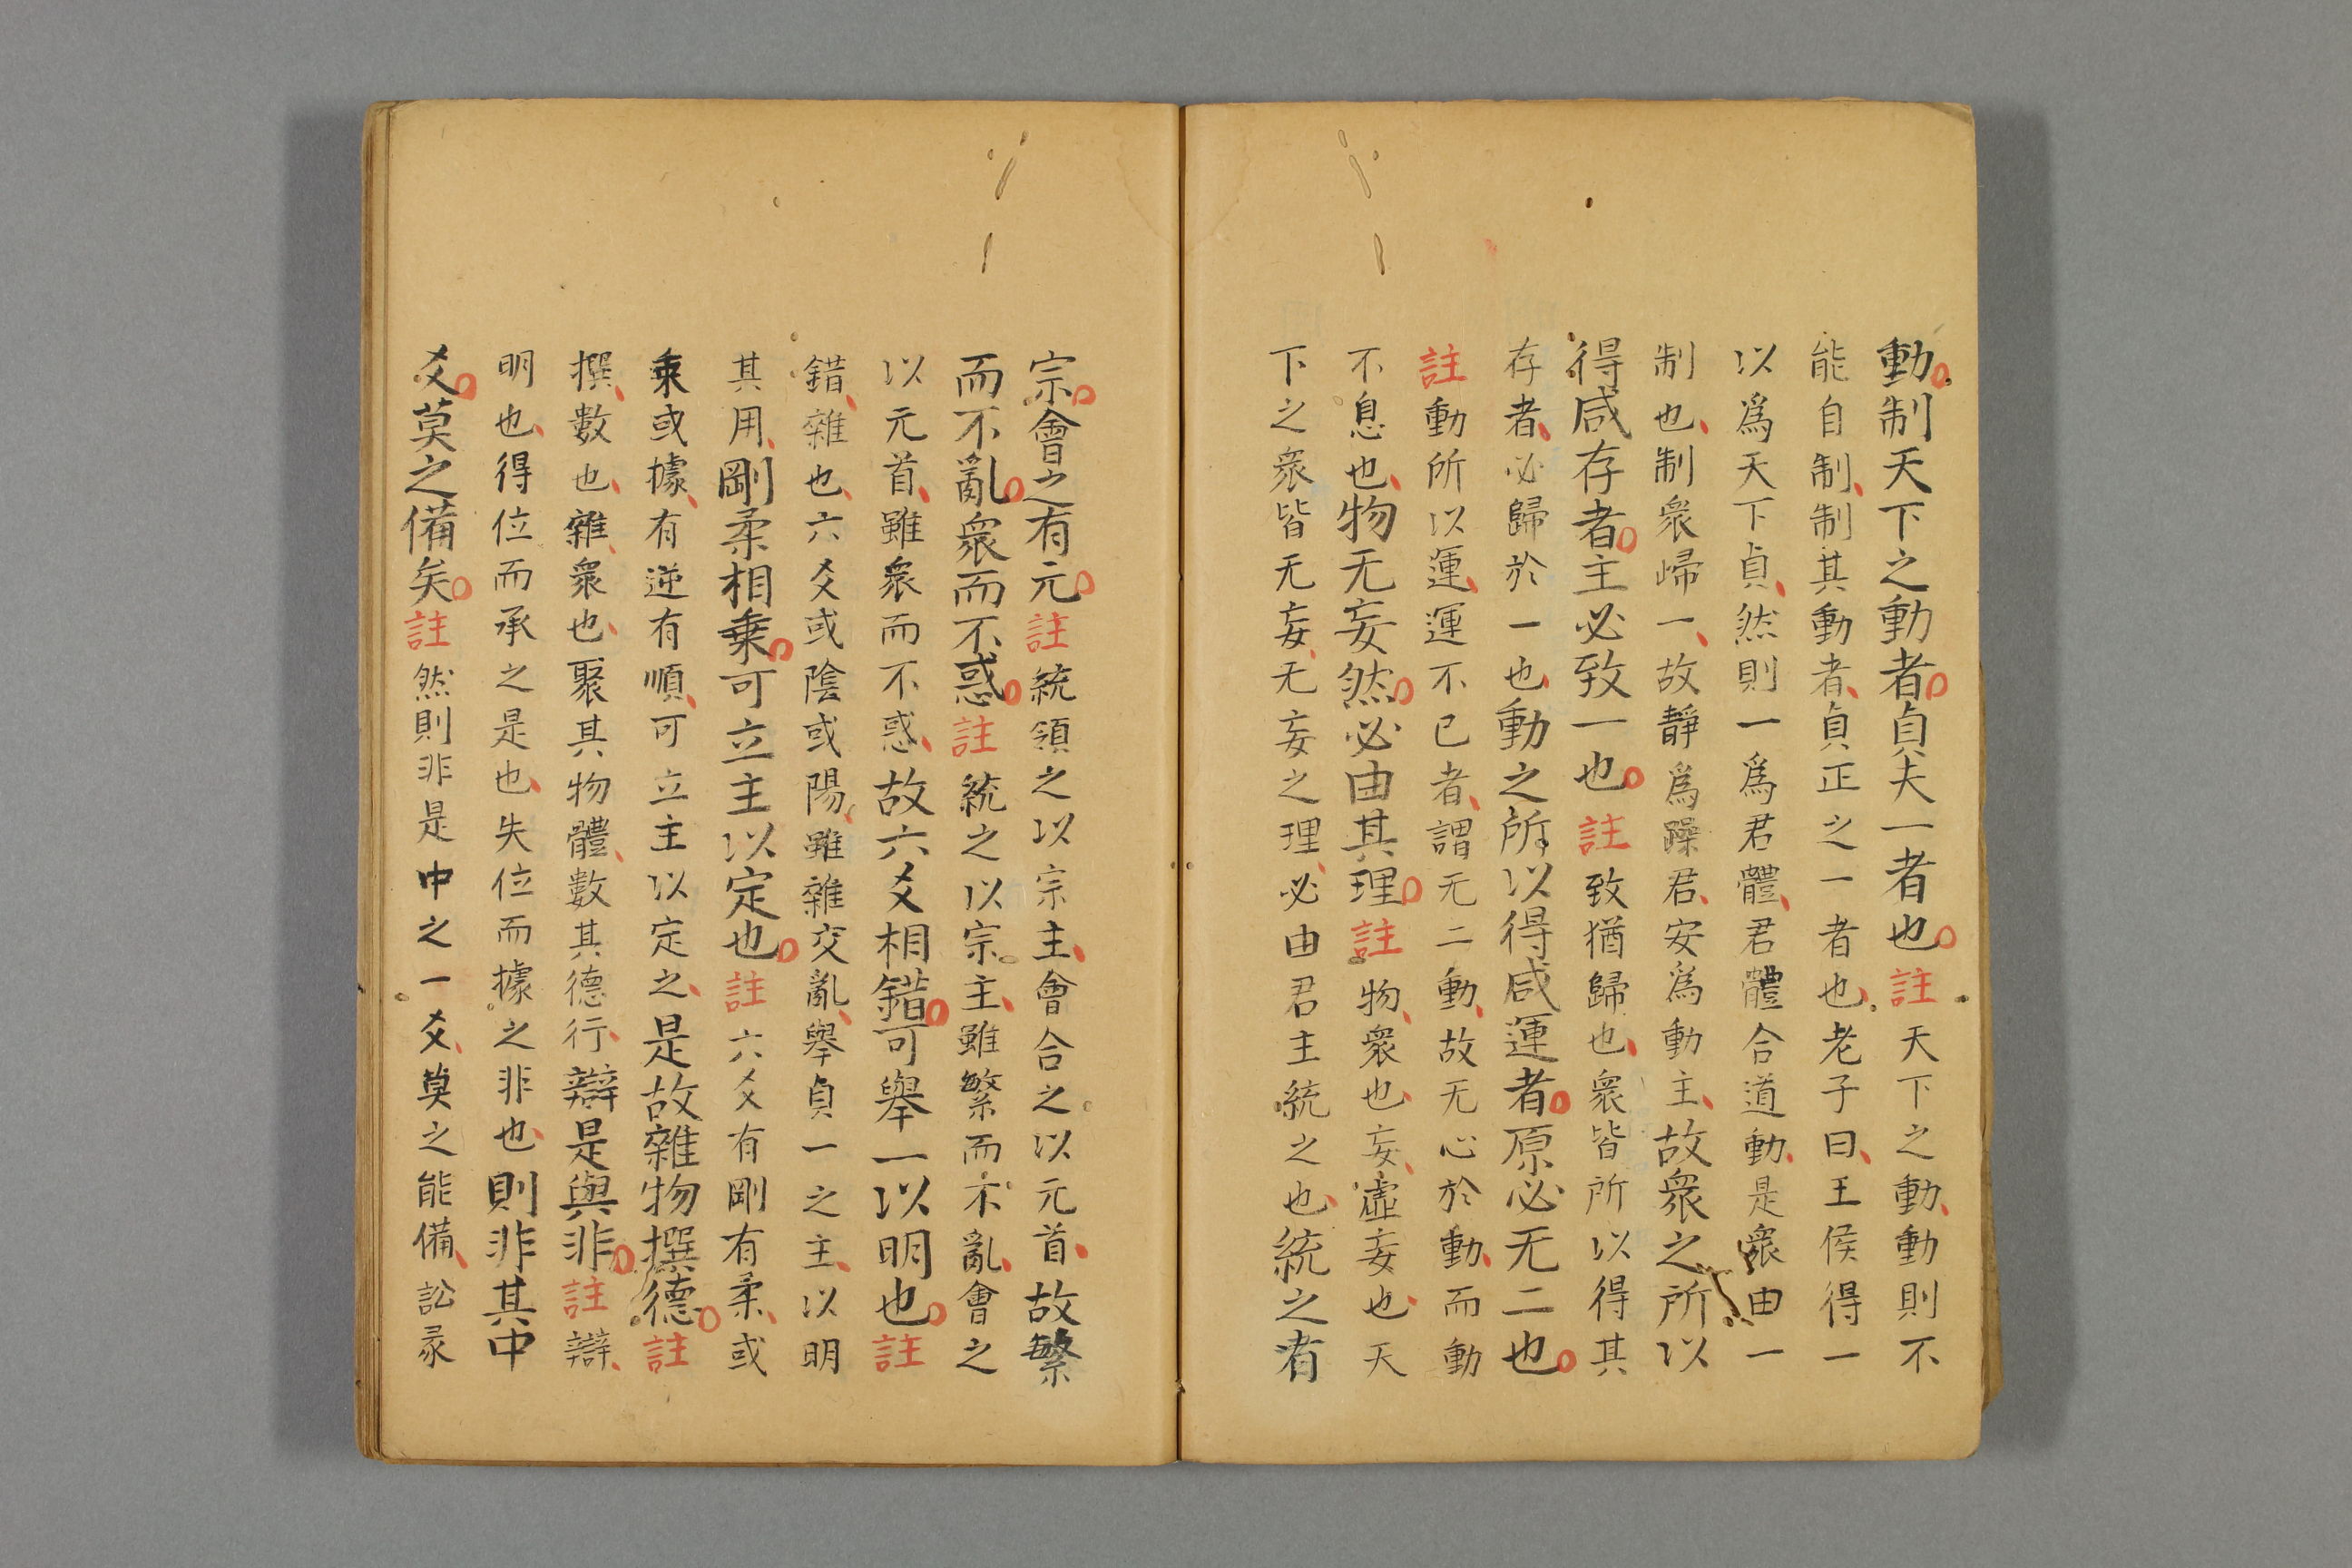 動制天下之動者貞夫一者也註天下之動動則不
能自制制其動者貞正之一者也老子曰王侯得一
以爲天下貞然則一爲君體君體合道動是衆由一
制也制衆歸一故靜爲躁君安爲動主故衆之所以
得咸存者主必致一也註致猶歸也衆皆所以得其
存者必歸於一也動之所以得咸運者原必无二也
註動所以運運不已者謂无二動故无心於動而動
不息也物无妄然必由其理註物衆也妄虛妄也天
下之衆皆无妄无妄之理必由君主統之也統之者
宗會之有元註統領之以宗主會合之以元首故繁
而不亂衆而不惑註統之以宗主雖繁而不亂會之
以元首雖衆而不惑故六爻相錯可舉一以明也註
錯雜也六爻或陰或陽雖雜交亂舉貞一之主以明
其用剛柔相乗可立主以定也註六爻有剛有柔或
乗或據有逆有順可立主以定之是故雜物撰德註
撰數也雜衆也聚其物體數其德行辯是與非註辯
明也得位而承之是也失位而據之非也則非其中
爻莫之備矣註然則非是中之一爻莫之能備訟彖